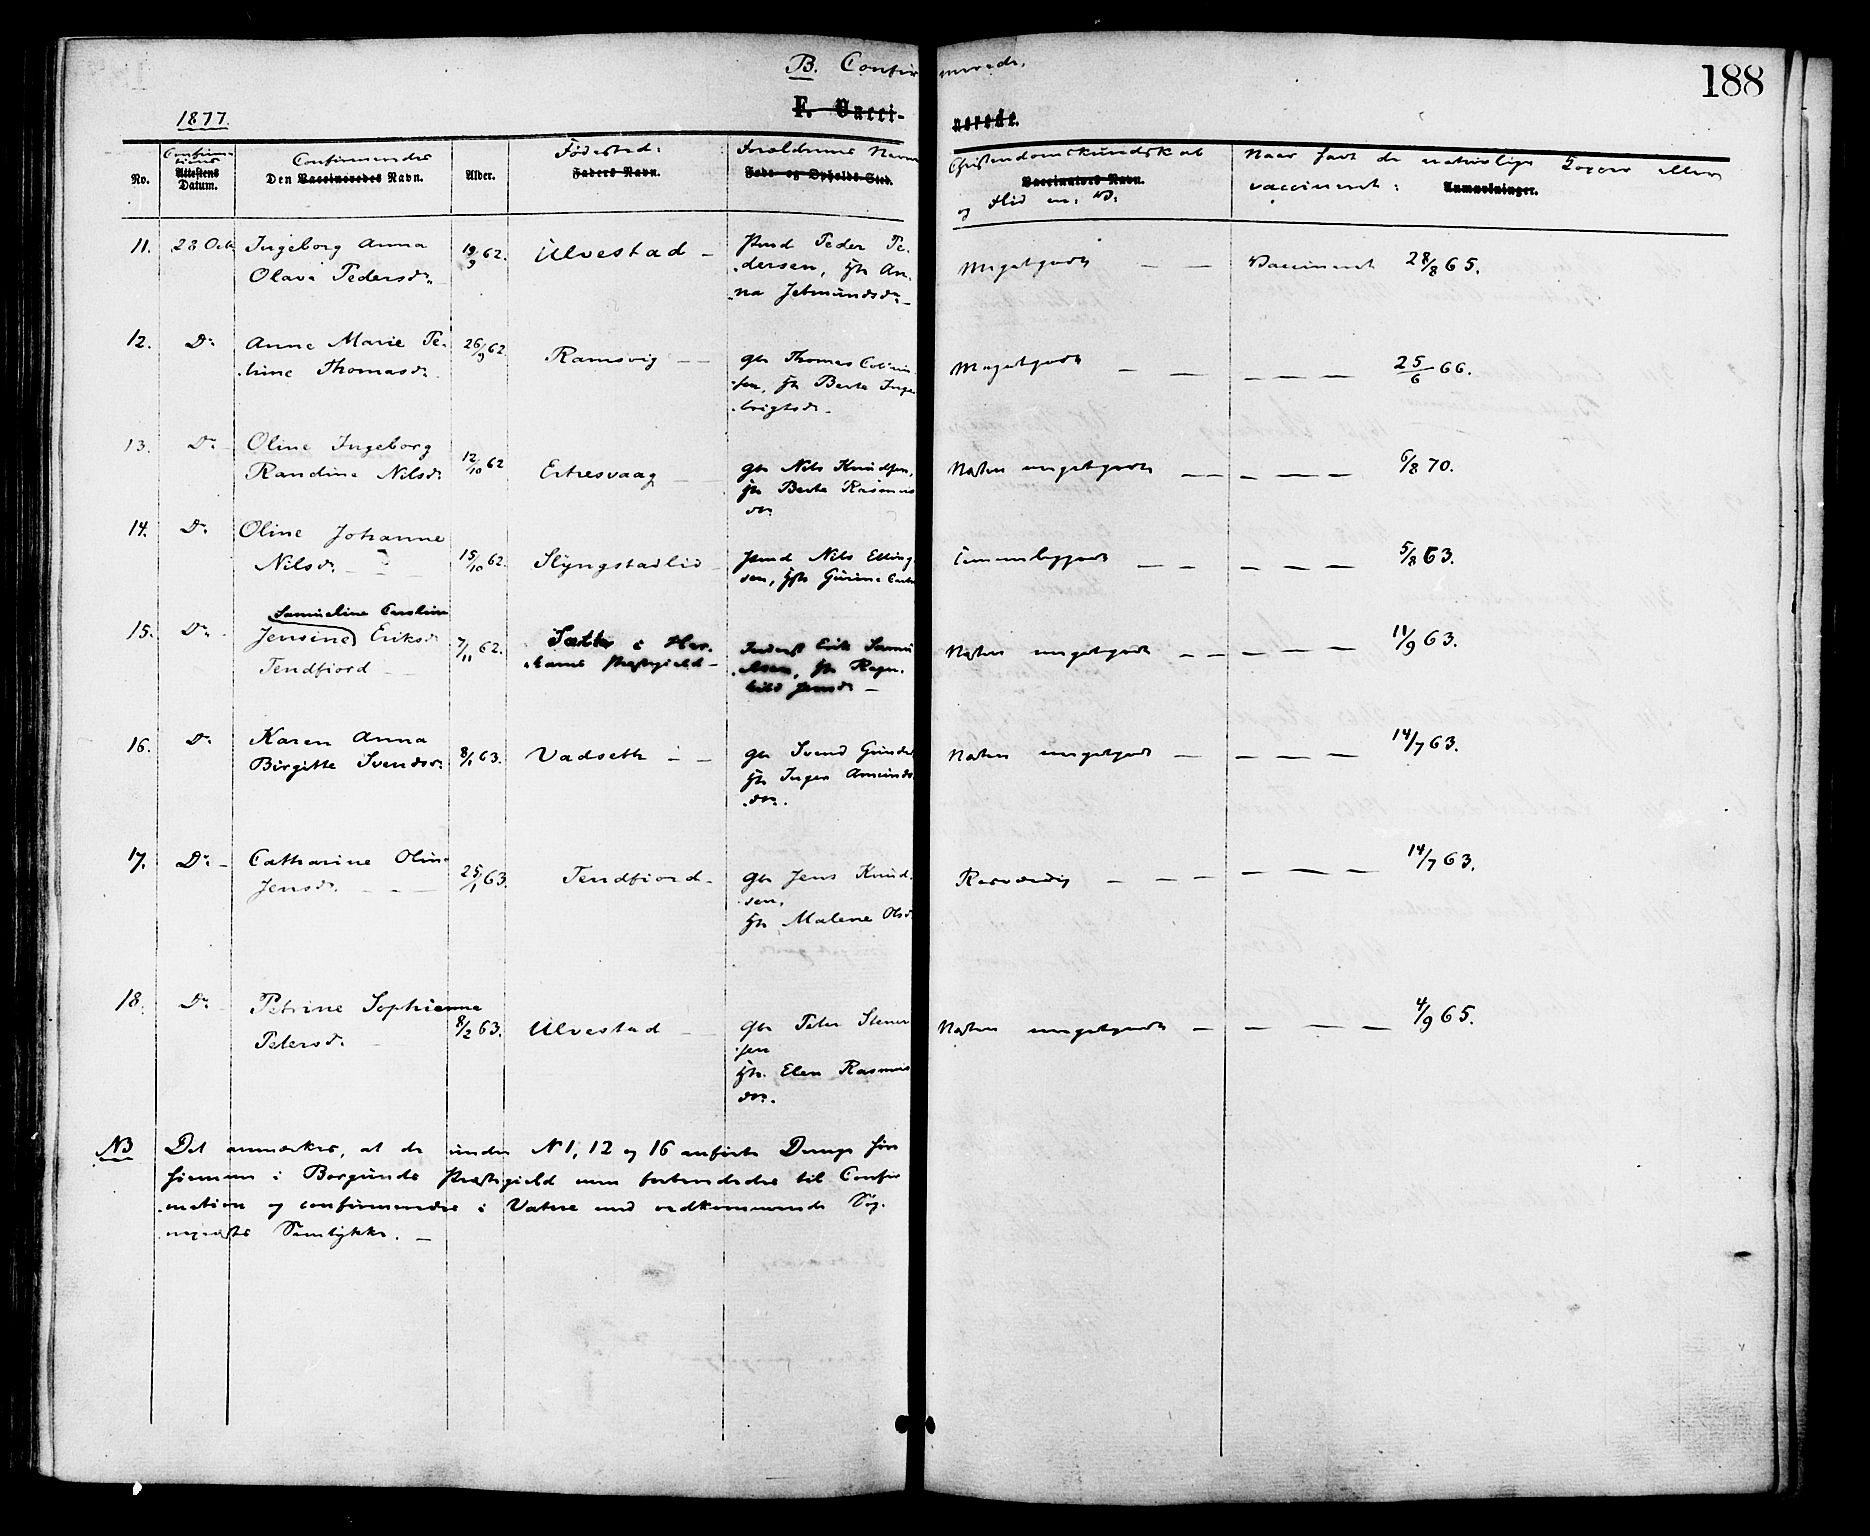 B. Confirmerede.
188
1877.
F. Vaccinerede.
No.
Confirmations
Attestens
Datum.
Confirmeredes
Den Vaccineredes Navn.
Alder.
Fødested:
Faders Navn.
Forældrenes Navne
Føde- og Opholds-Sted.
Christendomskundskab
Vaccinators Navn.
og Flid m. V.
Naar havt de naturlige Kopper eller
vaccineret:
Anmærkninger.
11. 28 Octb Ingeborg Anna
Olava Pedersdr.
19/9 62. Ulvestad
Pmd Peder Pe-
dersen, Hu An-
na Jetmundsdr.
Megetgodt — — Vaccineret 28/8 65.
12. Do Anne Marie Pe-
line Thomasdr.
26/9 62. Ramsvig
Gbr Thomas
sen, Hu Berte Inge
brigtsdr.
Megetgodt — — — — — 25/6 66.
13. Do Oline Ingeborg
Randine Nilsdr
12/10 62 Ertresvaag
Gbr Nils Knudsen,
Hu Berte Rasmus
dr.
Næsten megetgodt — — — — — 6/8 70.
14. Do Oline Johanne
Nilsdr.
15/10 62. Slyngstadlid
Pmd Nils Elling
sen, Hu Gurine
Temmeliggodt — — — — — 5/8 63.
15. Do Samueline Caroline
Jensine Eriksdr
Tendfiord
7/11 62. Sætter i Har-
hams Præstegield
Inderst Erik Samu
elsen, Hu Ragn-
hild Jensdr
Næsten megetgodt — — — — — 11/9 63.
16. Do Karen Anna
Birgitte Svendsdr.
8/1 63. Vadseth
Gbr Svend Gunder
Hu Inger Amunds
dr.
Næsten megetgodt — — — — 14/7 63.
17. Do Catharine Oline
Jensdr.
25/1 63. Tendfiord
Gbr Jens Knud-
sen,
Hu Malene Olsdr
Rosværdig — — — — — — 14/7 63.
18. Do Petrine Sophianne
Petersdr.
8/2 63. Ulvestad
Gbr Peter Stener
sen
Hu. Elen Rasmus
dr.
Næsten megetgodt — — — — 4/9 65.
NB Det anmærkes, at de under N 1, 12 og 16 anførte Drenge har
hiemme i Borgunds Præstegield men forberededes til Confir
mation og confirmeredes i Vatne med vedkommende Sog-
nepræsts Samtykke.